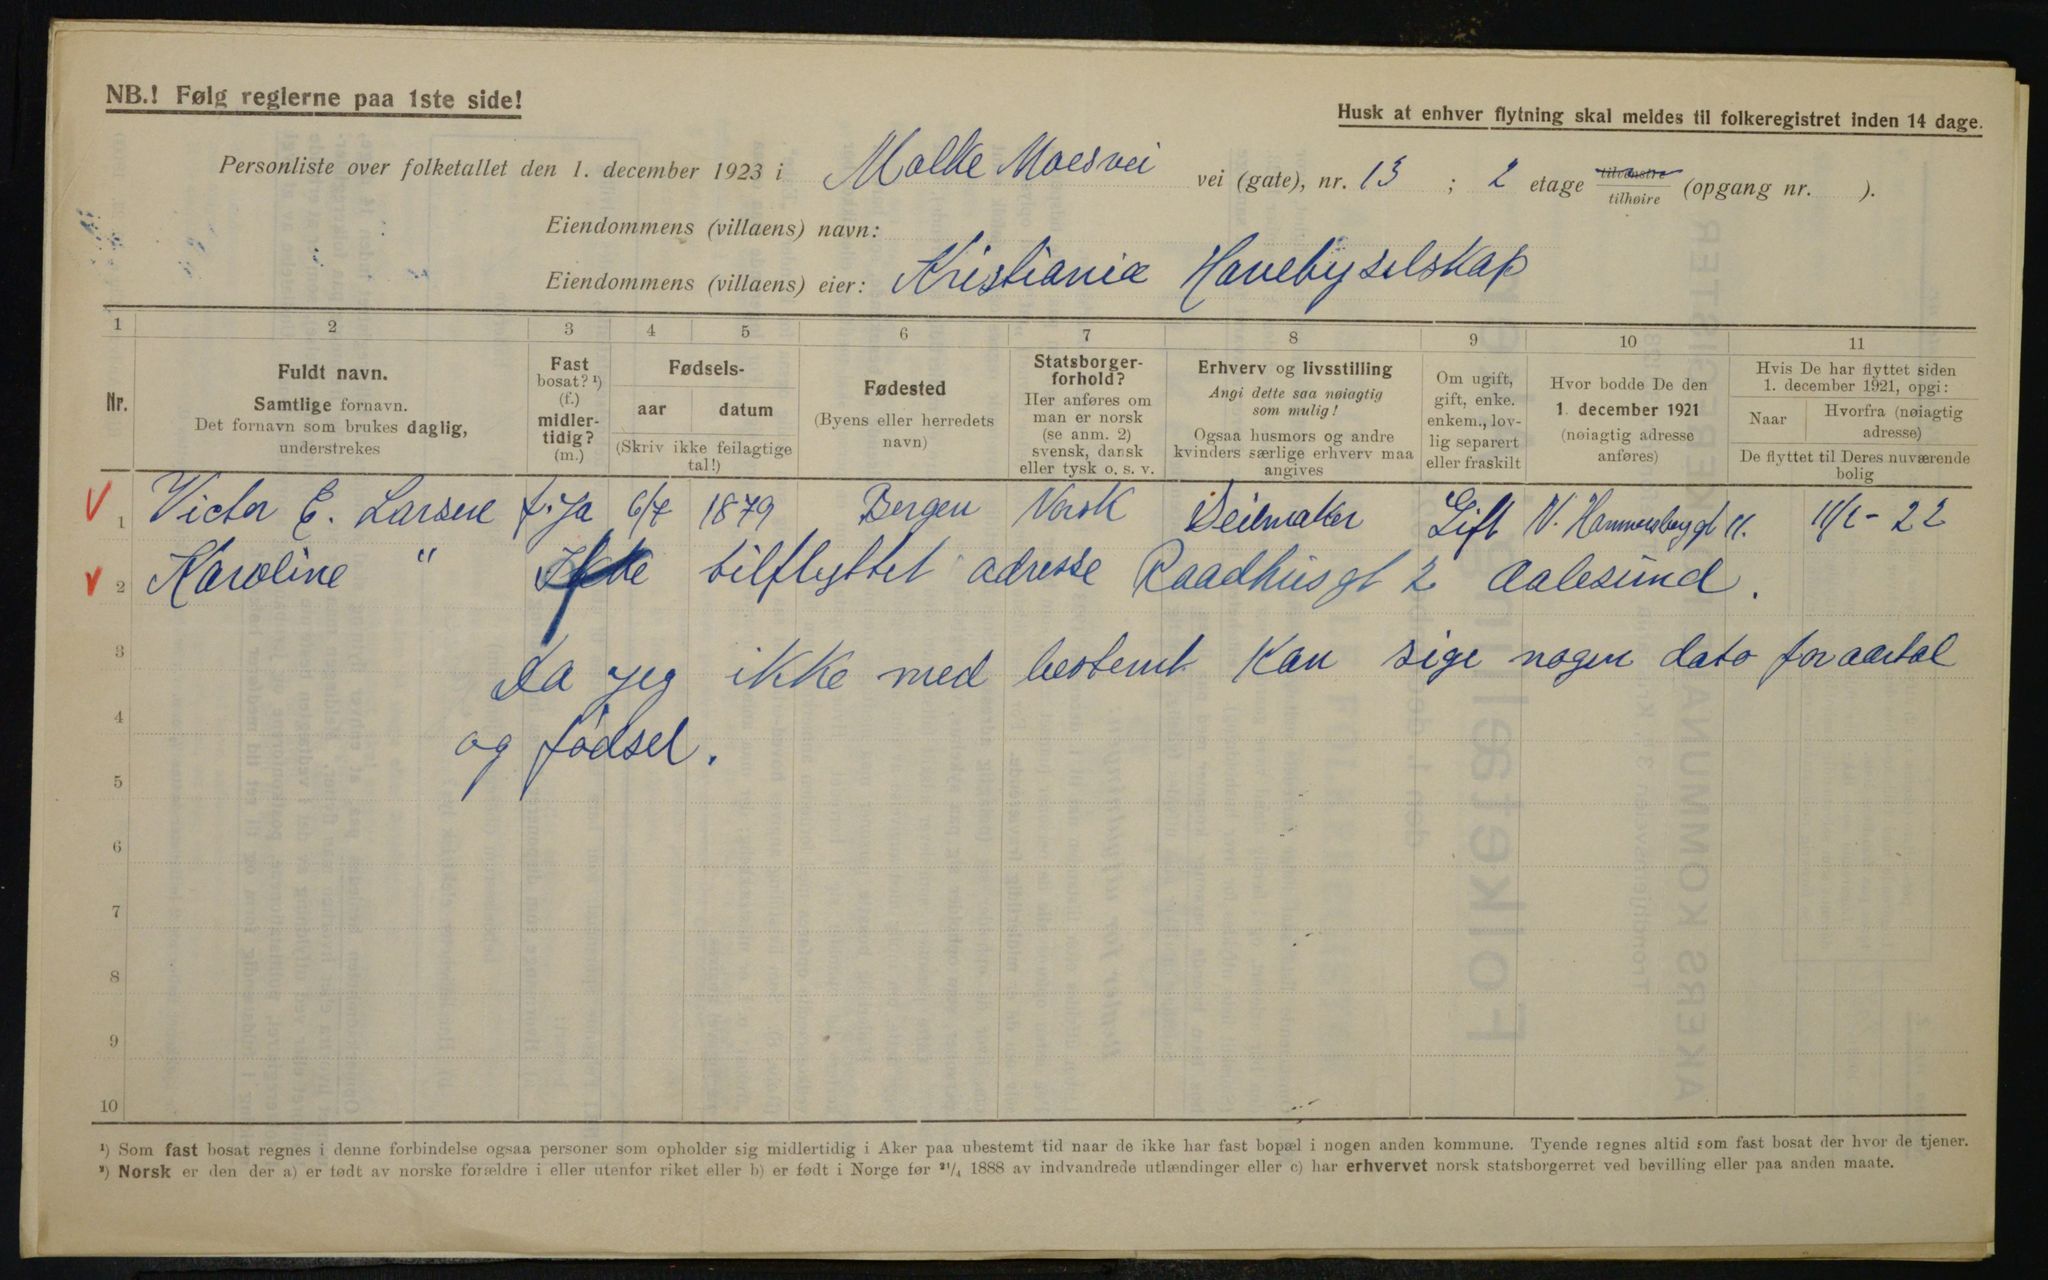 NB.! Følg reglerne paa 1ste side!
Husk at enhver flytning skal meldes til folkeregistret inden 14 dage.
Personliste over folketallet den 1. december 1923 i Molkte Moesvei vei (gate), nr. 13 ; 2 etage tilvenstre tilhøire (opgang nr. ).
Eiendommens (villaens) navn:
Eiendommens (villaens) eier: Kristiania Havebyselskap
1 2 3 4 5 6 7 8 9 10 11
Nr.
Fuldt navn.
Samtlige fornavn.
Det fornavn som brukes daglig,
understrekes
Fast
bosat? ¹)
(f.)
midler-
tidig?
(m.)
Fødsels-
aar datum
(Skriv ikke feilagtige
tal!)
Fødested
(Byens eller herredets
navn)
Statsborger-
forhold?
Her anføres om
man er norsk
(se anm. 2)
svensk, dansk
eller tysk o. s. v.
Erhverv og livsstilling
Angi dette saa nøiagtig
som mulig!
Ogsaa husmors og andre
kvinders særlige erhverv maa
angives
Om ugift,
gift, enke.
enkem., lov-
lig separert
eller fraskilt
Hvor bodde De den
1. december 1921
(nøiagtig adresse
anføres)
Hvis De har flyttet siden
1. december 1921, opgi:
Naar
Hvorfra (nøiagtig
adresse)
De flyttet til Deres nuværende
bolig
1 Victor E. Larsen f. ja 6/7 1879 Bergen Norsk Seilmaker Gift V. Hammersbergt 11. 11/1 - 22
2 Karoline " Ikke tilflyttet adresse Raadhusgt 2 Aalesund.
3 Da jeg ikke med bestemt kan sige nogen dato for aartal
4 og fødsel.
5
6
7
8
9
10
¹) Som fast bosat regnes i denne forbindelse ogsaa personer som opholder sig midlertidig i Aker paa ubestemt tid naar de ikke har fast bopæl i nogen anden kommune. Tyende regnes altid som fast bosat der hvor de tjener.
²) Norsk er den der a) er født av norske forældre i eller utenfor riket eller b) er født i Norge før ²¹/₄ 1888 av indvandrede utlændinger eller c) har erhvervet norsk statsborgerret ved bevilling eller paa anden maate.